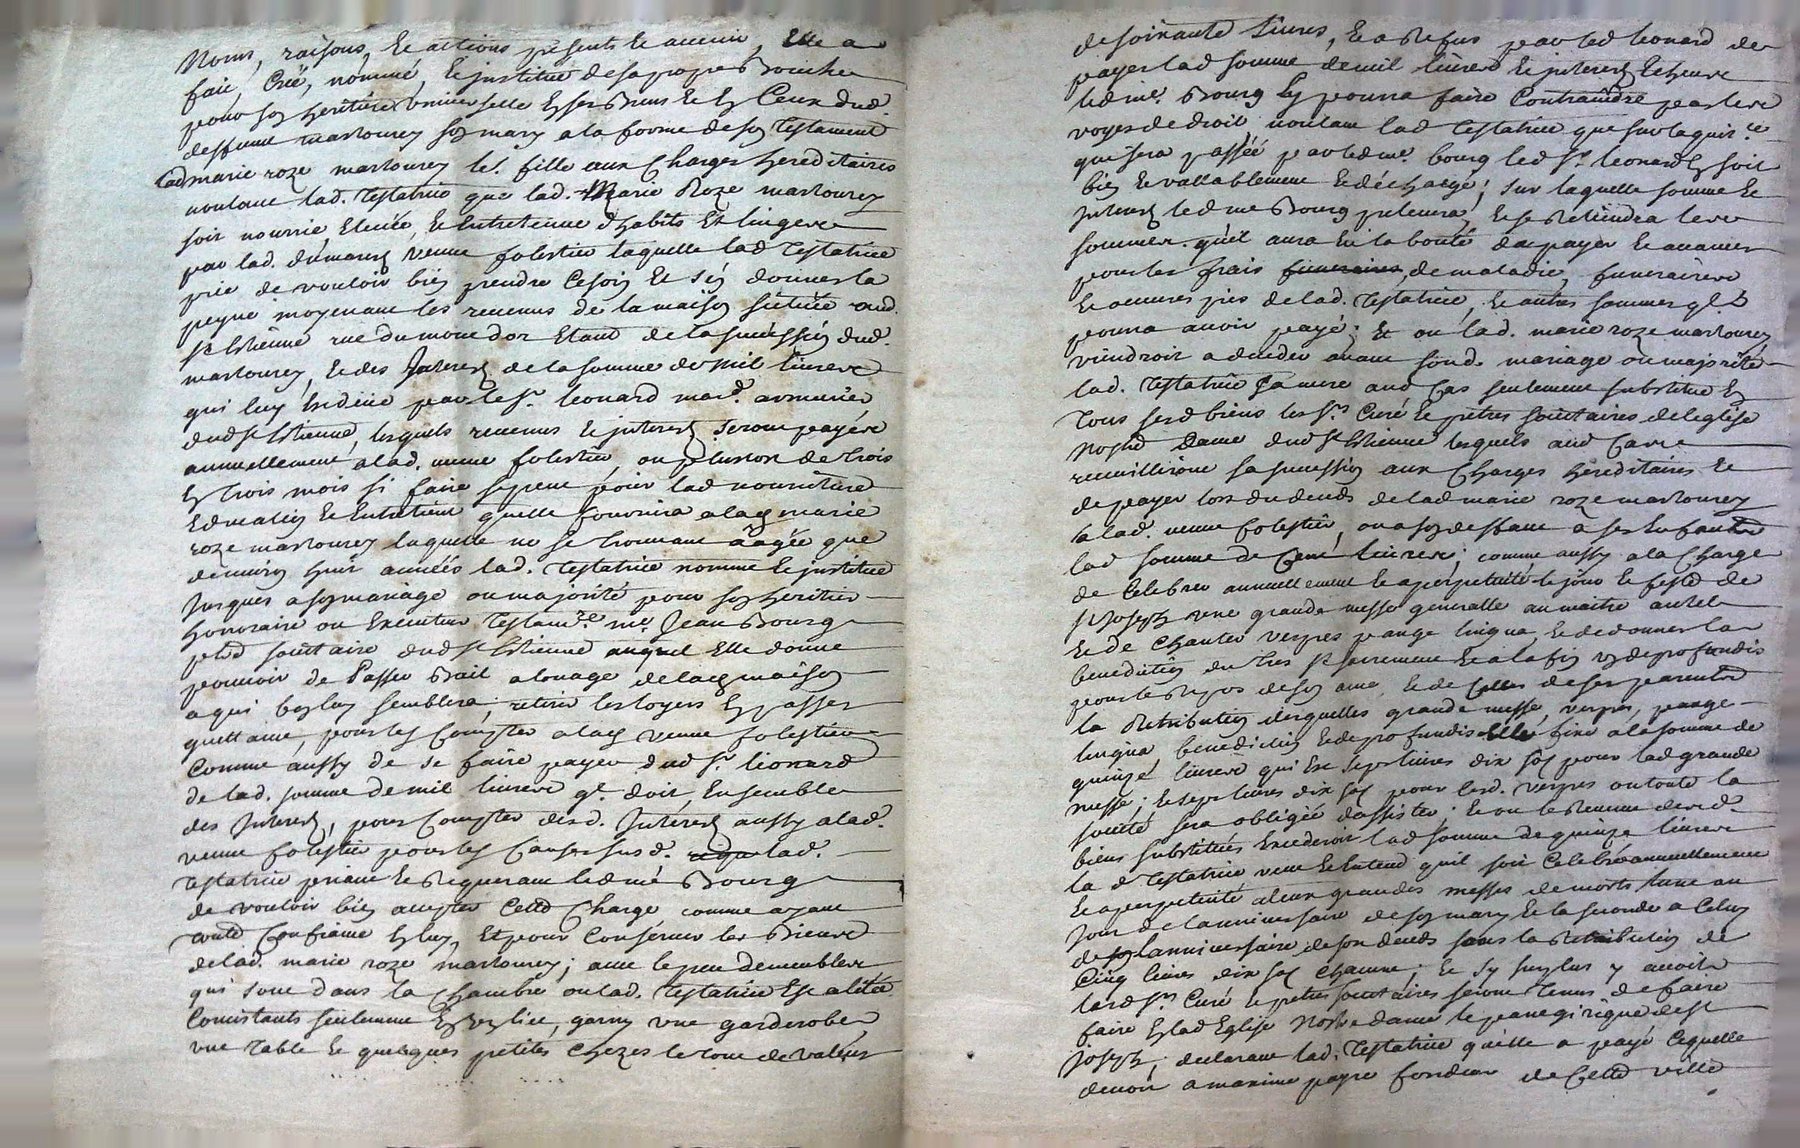 Noms, raisons, et actions presents et avenir, Elle a
fait, Créé, nommé, et institué de sa propre Bouche
pour son heritiere universelle En ses Biens et En Ceux dud.
deffunt martourey son mary a la forme de son Testament
lad marie roze martourey le. fille aux Charges hereditaires
voulant lad. Testatrice que lad. Marie Roze martourey
soit nourrie, Elevée, et Entretenue d'habits Et lingere
par lad. dumarest veuve folestier laquelle lad Testatrice
prie de vouloir bien prendre Ce soin Et s'en donner la
peyne moyenant les revenus de la maison scituée aud.
St Estienne rue du mont d'or Etant de la succession dud.
martourey, et des Interest de la somme de mil livres
qui luy Est deüe par le Sr. leonard mard. armurier
dud St Estienne, lesquels revenus et interest seront payere
annuellement a lad. veuve folestier, ou plustost de trois
En trois mois si faire se peut pour lad nourriture
Education et Entretient quelle fournira a lad marie
roze martourey laquelle ne se trouvant aagée que
denviron huit années lad. Testatrice nomme et institue
jusques a son mariage ou majorité pour son heritier
honoraire ou Executeur Testamre. me. Jean Bourg
ptre societaire dud St Estienne auquel Elle donne
pouvoir de Passer Bail a louage de lad maison
a qui bon luy semblera, retirer les loyers En passer
quittance, pour les Compter a lad veuve folestier
Comme aussy de se faire payer dud Sr. leonard
de lad. somme de mil livres ql. doit, Ensemble
des Interest, pour Compter desd. Interest aussy a lad.
veuve folestier pour les Causes susd. lad.
Testatrice priant et Requerant led me Bourg
de vouloir bien accepter Cette Charge comme ayant
toute Confiance En luy, Et pour Conserver les Biens
de lad. marie roze martourey; avec le peu de meubles
qui sont dans la Chambre ou lad. Testatrice Est alitée
Concistants seulement En un lict, garny une garderobe,
une Table et quelques petites Chezes le tout de valeur
de soixante livres, Et a Refus par led leonard de
payer lad somme de mil livres et interest Echeus
led me. Bourg l'y pourra faire Contraindre par les
voyes de droit voulant lad Testatrice que sur la quittce
qui sera passée par led me. bourg led Sr. leonard En soit
bien et vallablement et déchargé; sur laquelle somme et
Interest led me Bourg prelevera, et se Retiendra les
sommes. qu'il aura Eü la bonté de payer et avancer
pour les frais de maladie, funeraires
et oeuvres pies de lad. Testatrice, et autres sommes ql.
pourra avoir payé; Et ou lad. marie roze martourey
viendroit a deceder avant sond. mariage ou majorité
lad. Testatrice sa mere aud Cas seulement substitue En
Tous sesd biens les Srs Curé et prêtres societaires de l'eglise
Nostre Dame dud St Estienne lesquels aud Cas
recueilliront sa succession aux Charges hereditaires et
de payer lors du deceds de lad marie roze martourey
a lad. veuve folestier, ou a son deffaut a ses Enfants
lad somme de Cent livres; comme aussy a la Charge
de Celebrer annuellement et a perpetuité le jour et feste de
St Joseph une grande messe generalle au maitre autel
Et de Chanter vespres pange lingua, et de donner la
benediction du tres St sacrement et a la fin un de profundis
pour le Repos de son ame, et de Celles de ses parents
la Retribution desquelles grande messe, vespres, pange
lingua benediction et de profundis Elle fixe a la somme de
quinze livres qui Est sept livres dix sols pour lad grande
messe; et sept livres dix sols pour lesd. vespres ou toute la
societé sera obligée d'assister; et ou le Revenu desd.
biens substitués Excederoit lad somme de quinze livres
la d Testatrice veut et Entend quil soit Celebré annuellement
Et a perpetuité deux grandes messes de morts l'une au
jour de l'anniversaire de son mary et la seconde a Celuy
de l'anniversaire de son deceds sous la Retribution de
Cinq livres dix sols Chacune; et s'y surplus y avoit
lesd Srs Curé et prêtres societaires seront Tenus de faire
faire En lad Eglise Nostre dame le panegirique de St
Joseph; declarant lad. Testatrice qu'elle a payé Cequelle
devoit a maxime payre fondeur de Cette ville